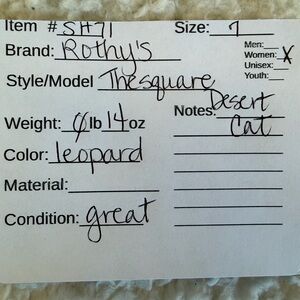 Item # SH71 Size: 7
Brand: Rothy's Men:
Women: X
Unisex:
Youth:
Style/Model Thesquare
Notes: Desert
Cat
Weight: 0 lb 14 oz
Color: leopard
Material:
Condition: great